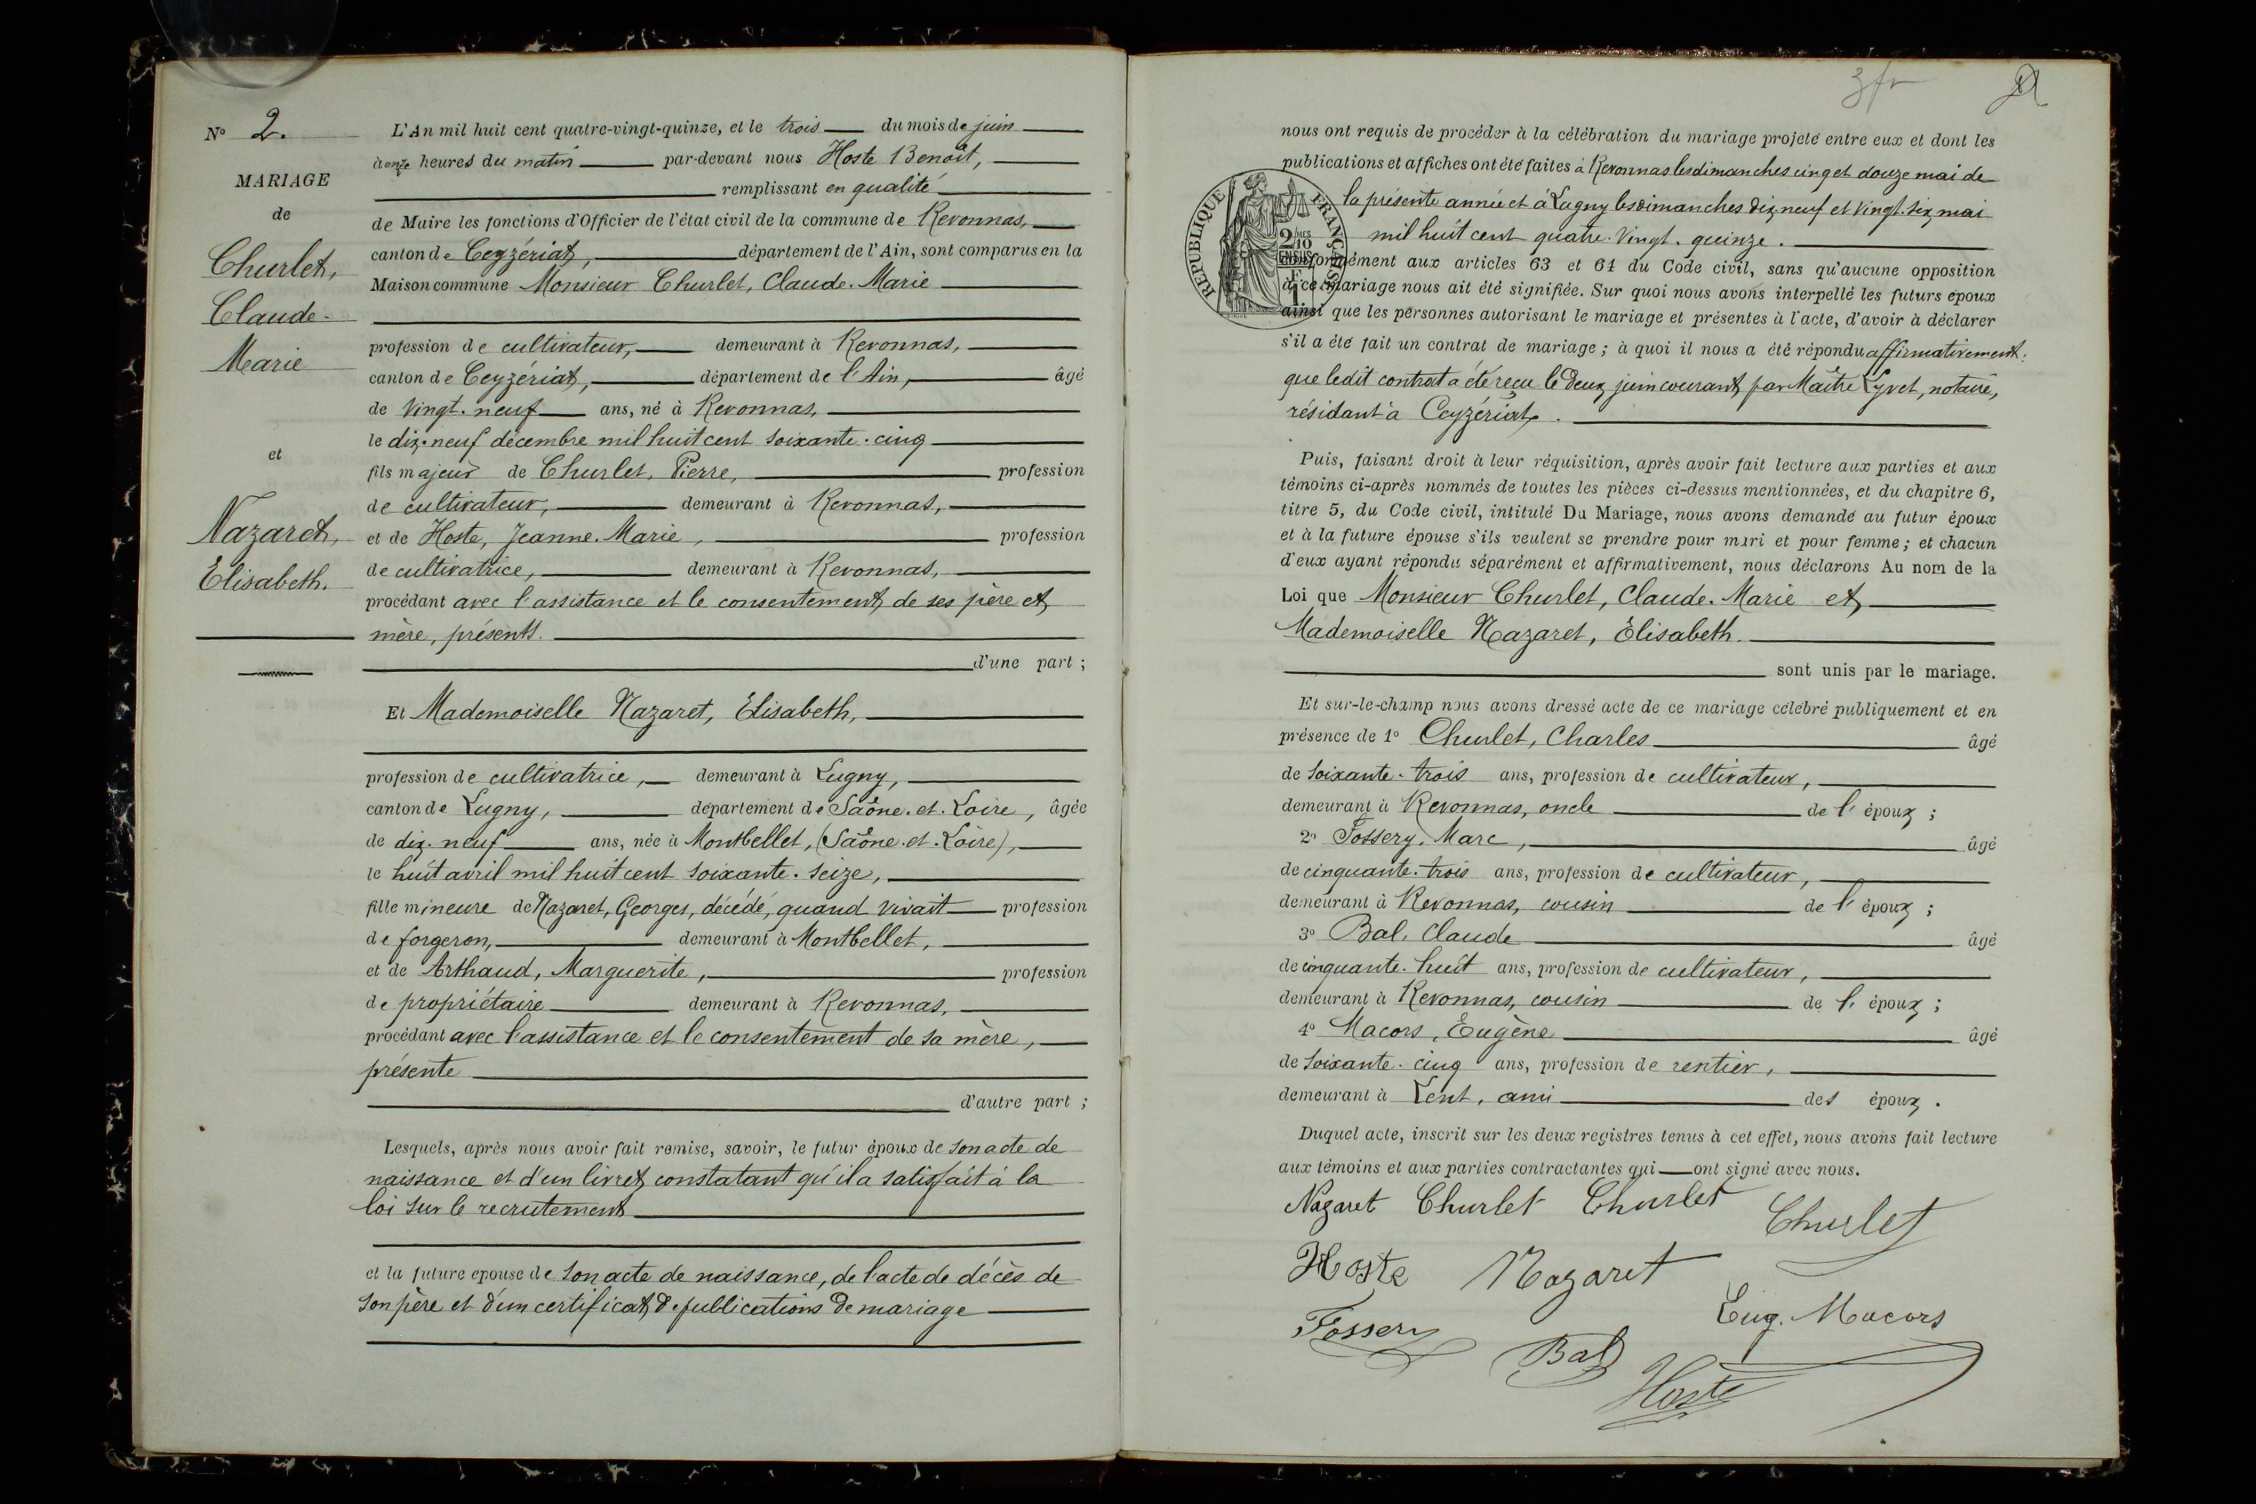 N° 2.
MARIAGE
de
Churlet,
Claude-
Marie
et
Nazaret,
Elisabeth.
L'An mil huit cent quatre-vingt-quinze, et le trois du mois de juin
à onze heures du matin par-devant nous Hoste Benoît,
remplissant en qualité
de Maire les fonctions d'Officier de l'état civil de la commune de Revonnas,
canton de Ceyzériat, département de l'Ain, sont comparus en la
Maison commune Monsieur Churlet, Claude-Marie
profession de cultivateur, demeurant à Revonnas,
canton de Ceyzériat, département de l'Ain, âgé
de vingt-neuf ans, né à Revonnas,
le dix-neuf décembre mil huit cent soixante-cinq
fils majeur de Churlet, Pierre, profession
de cultivateur, demeurant à Revonnas,
et de Hoste, Jeanne-Marie, profession
de cultivatrice, demeurant à Revonnas,
procédant avec l'assistance et le consentement de ses père et
mère, présents.
d'une part ;
Et Mademoiselle Nazaret, Elisabeth,
profession de cultivatrice, demeurant à Lugny,
canton de Lugny, département de Saône-et-Loire, âgée
de dix-neuf ans, née à Montbellet, (Saône-et-Loire),
le huit avril mil huit cent soixante-seize,
fille mineure de Nazaret, Georges, décédé, quand vivait profession
de forgeron, demeurant à Montbellet,
et de Arthaud, Marguerite, profession
de propriétaire demeurant à Revonnas,
procédant avec l'assistance et le consentement de sa mère,
présente
d'autre part ;
Lesquels, après nous avoir fait remise, savoir, le futur époux de son acte de
naissance et d'un livret constatant qu'il a satisfait à la
loi sur le recrutement
et la future épouse de son acte de naissance, de l'acte de décès de
son père et d'un certificat de publications de mariage
3 fr
nous ont requis de procéder à la célébration du mariage projeté entre eux et dont les
publications et affiches ont été faites à Revonnas les dimanches cinq et douze mai de
la présente année et à Lugny les dimanches dix neuf et vingt-six mai
mil huit cent quatre-vingt-quinze.
RÉPUBLIQUE FRANÇAISE
conformément aux articles 63 et 64 du Code civil, sans qu'aucune opposition
à ce mariage nous ait été signifiée. Sur quoi nous avons interpellé les futurs époux
ainsi que les personnes autorisant le mariage et présentes à l'acte, d'avoir à déclarer
s'il a été fait un contrat de mariage ; à quoi il nous a été répondu affirmativement:
que ledit contrat a été reçu le deux juin courant par Maître Lyvet, notaire,
résidant à Ceyzériat.
Puis, faisant droit à leur réquisition, après avoir fait lecture aux parties et aux
témoins ci-après nommés de toutes les pièces ci-dessus mentionnées, et du chapitre 6,
titre 5, du Code civil, intitulé Du Mariage, nous avons demandé au futur époux
et à la future épouse s'ils veulent se prendre pour mari et pour femme ; et chacun
d'eux ayant répondu séparément et affirmativement, nous déclarons Au nom de la
Loi que Monsieur Churlet, Claude-Marie et
Mademoiselle Nazaret, Elisabeth.
sont unis par le mariage.
Et sur-le-champ nous avons dressé acte de ce mariage célébré publiquement et en
présence de 1° Churlet, Charles âgé
de soixante-trois ans, profession de cultivateur,
demeurant à Revonnas, oncle de l'époux ;
2° Fossery, Marc, âgé
de cinquante-trois ans, profession de cultivateur,
demeurant à Revonnas, cousin de l'époux ;
3° Bal, Claude âgé
de cinquante-huit ans, profession de cultivateur,
demeurant à Revonnas, cousin de l'époux ;
4° Macors, Eugène âgé
de soixante-cinq ans, profession de rentier,
demeurant à Lent, ami des époux.
Duquel acte, inscrit sur les deux registres tenus à cet effet, nous avons fait lecture
aux témoins et aux parties contractantes qui ont signé avec nous.
Nazaret Churlet Churlet Churlet
Hoste Nazaret
Fossery Eug. Macors
Bal
Hoste